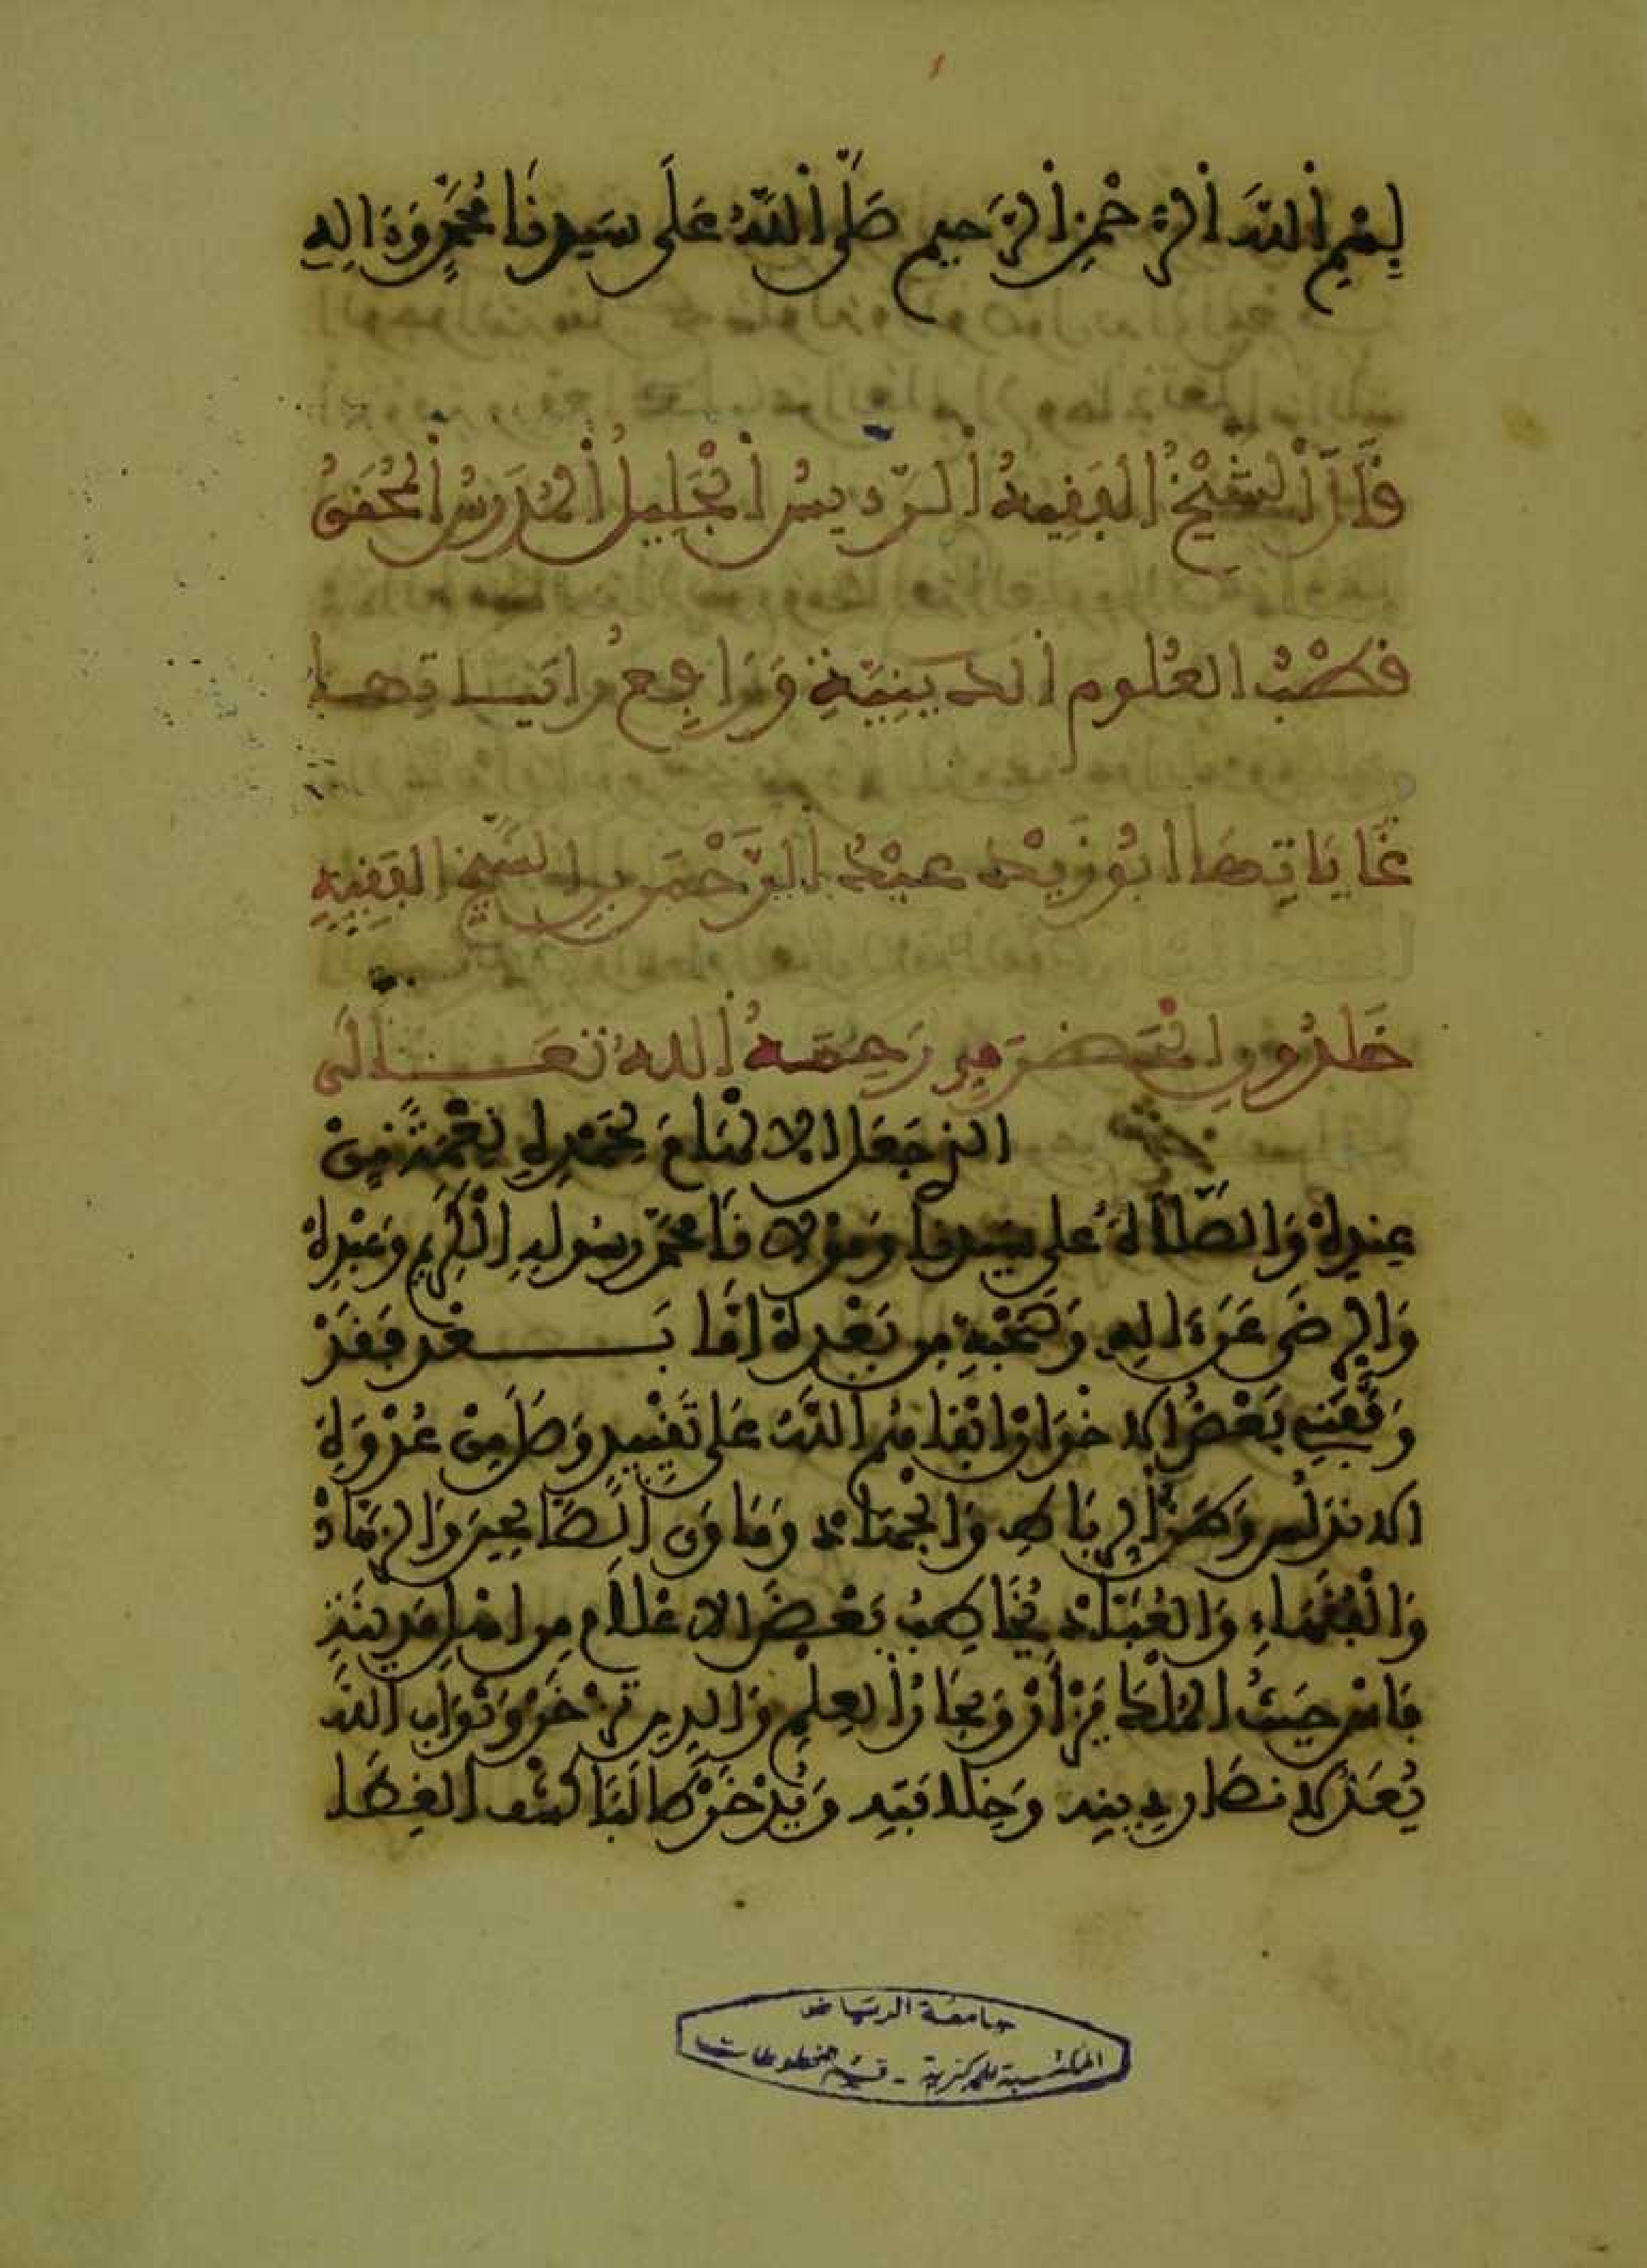 ١
بِسْمِ اللَّهِ الرَّحْمَنِ الرَّحِيمِ صَلَّى اللَّهُ عَلَى سَيِّدِنَا مُحَمَّدٍ وَءَالِهِ
قَالَ الشَّيْخُ الْفَقِيهُ الرَّئِيسُ الْجَلِيلُ الْمُدَرِّسُ الْمُحَقِّقُ
قُطْبُ الْعُلُومِ الدِّينِيَّةِ وَرَافِعُ رَايَاتِهَا
غَايَاتِهَا أَبُو زَيْدٍ عَبْدُ الرَّحْمَنِ بن الشَّيْخِ الْفَقِيهِ
خَلْدُونِ الْحَضْرَمِي رَحِمَهُ اللهُ تَعَالَى
الذي جَعَلَ الإلْهَامَ لِحَمْدِهِ نِعْمَةً مِنْ
عِنْدِهْ وَالصَّلَاةُ عَلَى سَيِّدِنَا وَمَوْلَانَا مُحَمَّدٍ رَسُولِهِ الْكَرِيمِ وَعَبْدِهْ
وَالرِّضَى عَنَ ءَالِهِ وَصَحْبِهِ مِن بَعْدِهْ أمَّا بَعْدُ فَقَدْ
وَقَّفَنِي بَعْضُ الإخْوَانِ أبْقَاهُمُ اللَّهُ عَلَى تَقْيِيدٍ وَصَلَ مِنْ عُدْوَةِ
الأندَلُسِ وَطَنِ الرِّبَاطِ وَالْجِهَادِ وَمَأوَى الصَّالِحِينَ وَالزُّهَّادْ
وَالْفُقَهَاءِ وَالْعُبَّادْ يُخَاطِبُ بَعْضَ الأعْلَامِ مِن أهْلِ مَدِينَةِ
فَاس حَيْثُ الْمُلْكُ يَزْأرْ وَبِحَارُ الْعِلْمِ وَالدِّينِ تَزْخَرُ وَثَوَابُ اللَّهِ
يُعَدُّ لأنصَارِ دِينِهِ وَخِلَافَتِهِ وَيُدْخَرْ طَالِبًا كَشْفَ الْغِطَا
جامعة الرياض
المكتبة المركزية - قسم المخطوطات